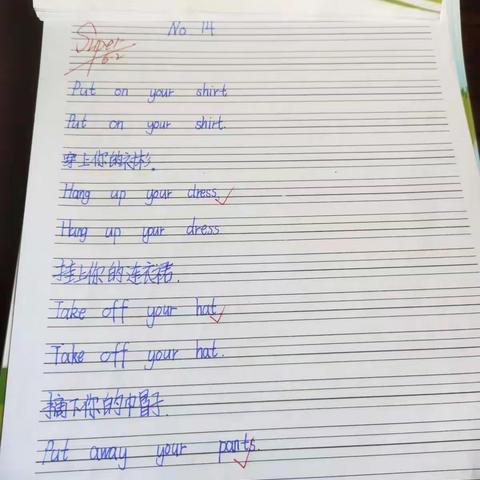 No 14
Super
6.2
Put on your shirt
Put on your shirt.
穿上你的衬衫.
Hang up your dress.
Hang up your dress
挂上你的连衣裙.
Take off your hat
Take off your hat.
摘下你的帽子.
Put away your pants.